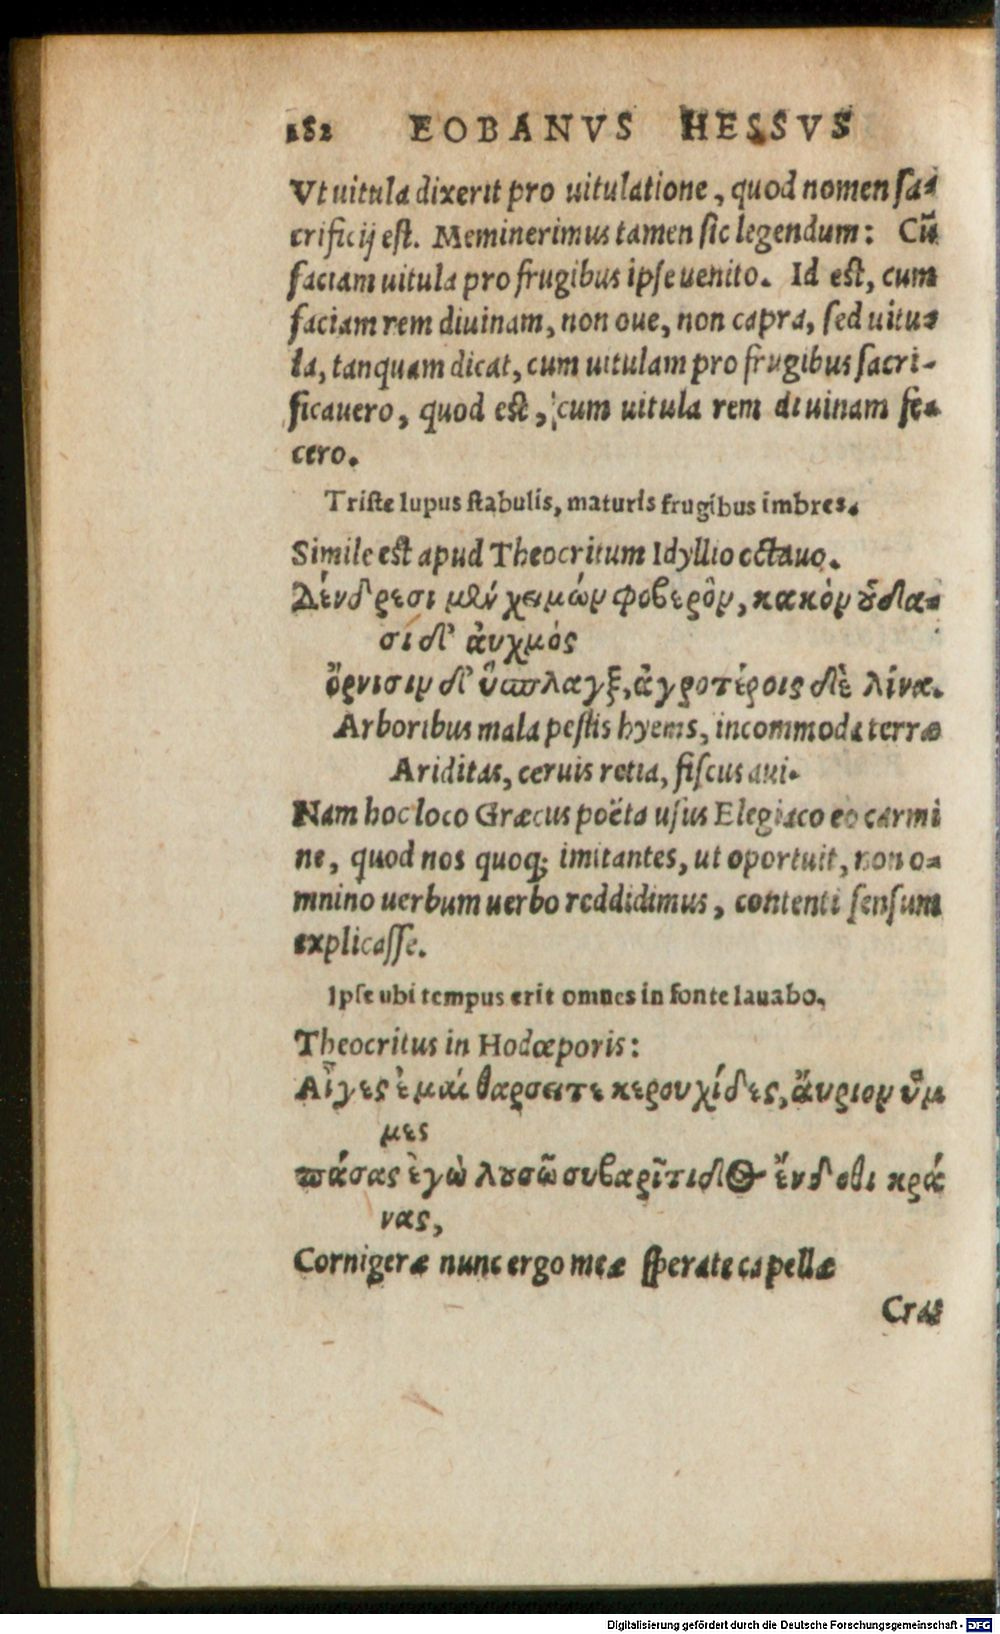 182 EOBANVS HESSVS
Vt uitula dixerit pro uitulatione, quod nomen sa-
crificij est. Meminerimus tamen sic legendum: Cũ
faciam uitula pro frugibus ipse uenito. Id est, cum
faciam rem diuinam, non oue, non capra, sed uitu-
la, tanquam dicat, cum uitulam pro frugibus sacri-
ficauero, quod est, cum uitula rem diuinam fe-
cero.
Triste lupus stabulis, maturis frugibus imbres.
Simile est apud Theocritum Idyllio octauo.
Δένδρεσι μὲν χειμὼν φοβερὸν, κακὸν ὕδα-
σι δ' ἀυχμός
ὄρνισιν δ' ὕσπλαγξ, ἀγροτέροις δὲ λίνα.
Arboribus mala pestis hyems, incommoda terræ
Ariditas, ceruis retia, fiscus aui.
Nam hoc loco Græcus poëta usus Elegiaco eo carmi
ne, quod nos quoq; imitantes, ut oportuit, non o-
mnino uerbum uerbo reddidimus, contenti sensum
explicasse.
Ipse ubi tempus erit omnes in fonte lauabo.
Theocritus in Hodœporis:
Αἶγες ἐμαὶ θαρσεῖτε κερουχίδες, ἄυριον ὔμ
μες
πάσας ἐγὼ λουσῶ συβαρῖτιδος ἔνδοθι κρά
νας,
Cornigeræ nunc ergo meæ sperate capellæ
Cras
Digitalisierung gefördert durch die Deutsche Forschungsgemeinschaft - DFG